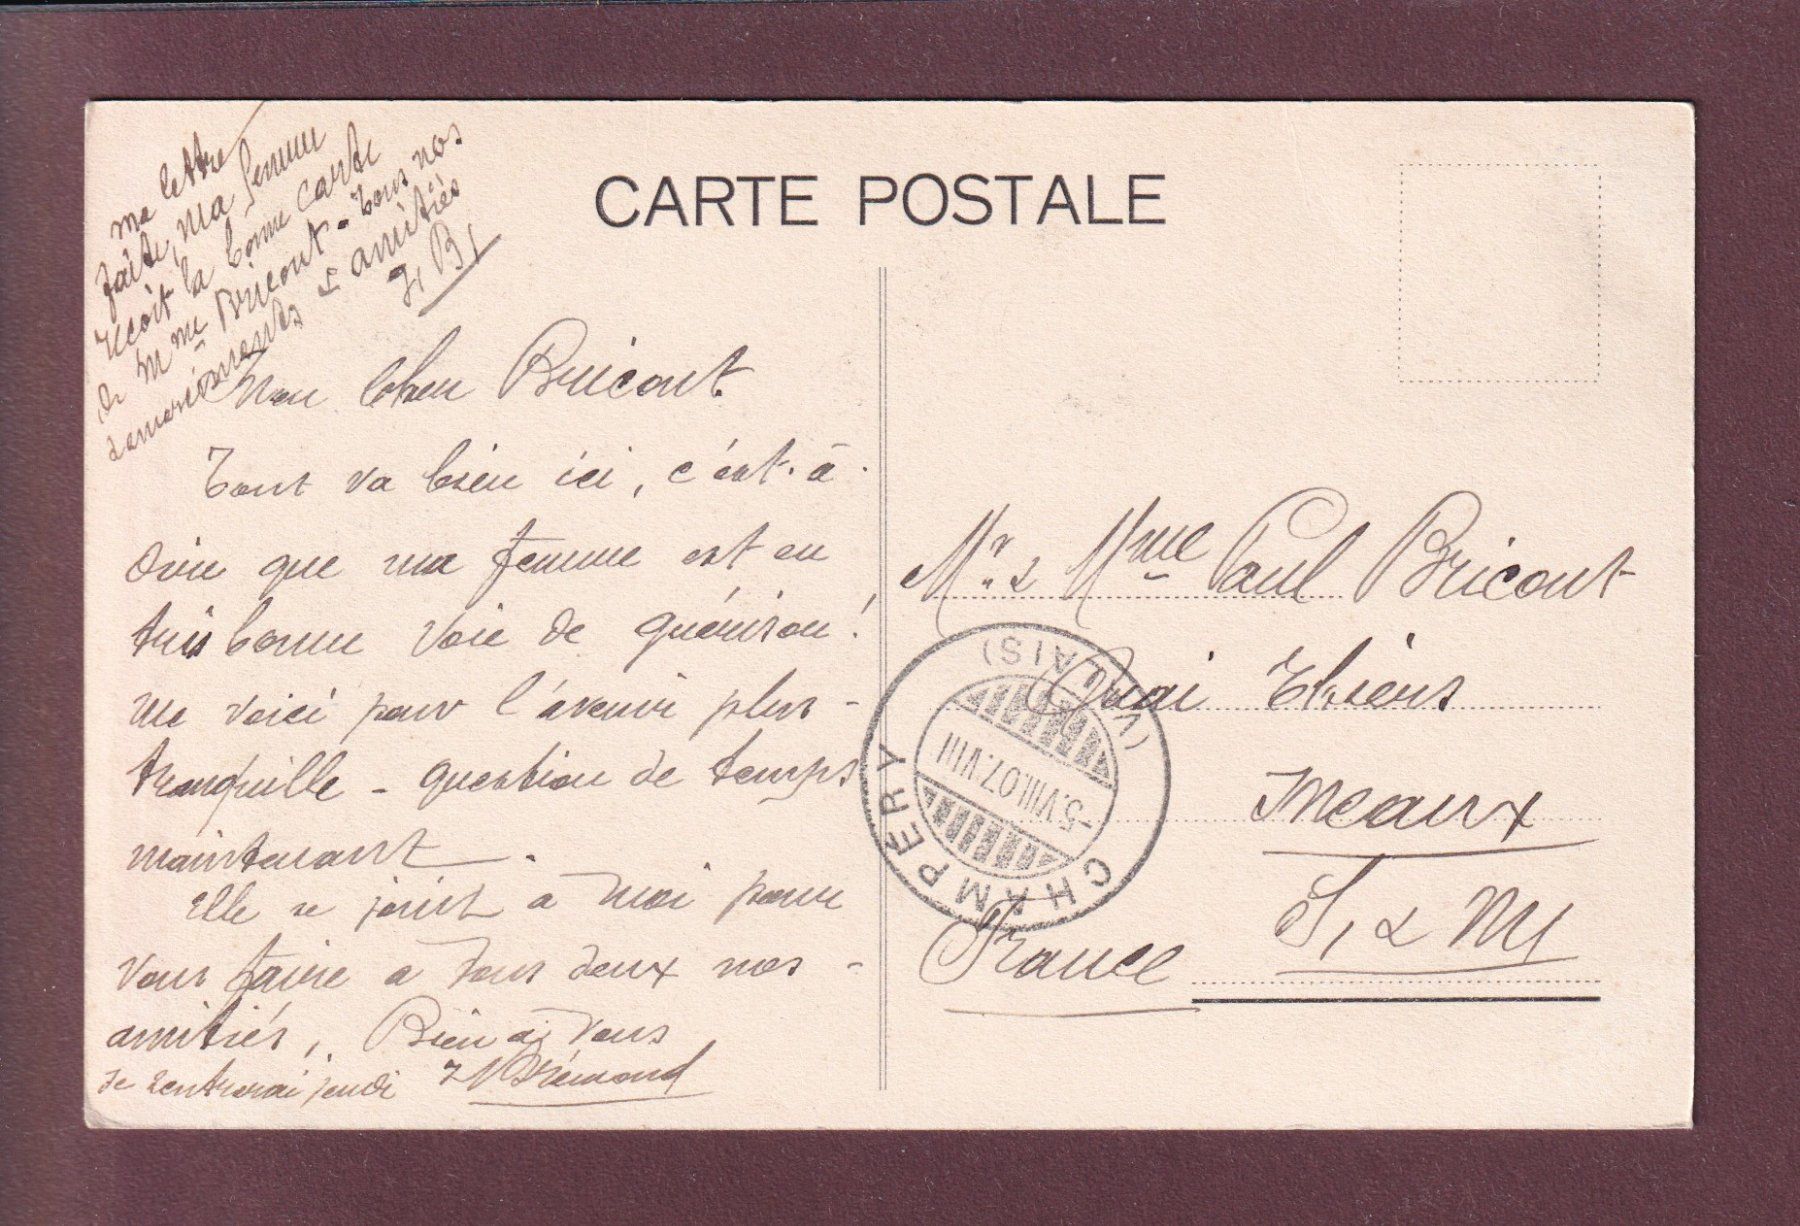 CARTE POSTALE
ma lettre
faite, ma femme
reçoit la bonne carte
de Mme Bricout - Tous nos
remerciements & amitiés
J, B,
Mon cher Bricout
Tout va bien ici, c'est-à-
dire que ma femme est en
très bonne voie de guérison!
me voici pour l'avenir plus-
tranquille - question de temps
maintenant.
Elle se joint à moi pour
vous faire à tous deux nos-
amitiés, Bien à vous
Je rentrerai jeudi Brémond
Mr. & Mme Paul Bricout
Quai Thiers
Meaux
S, & M,
France
CHAMPÉRY (VALAIS)
-5.VIII.07.VIII